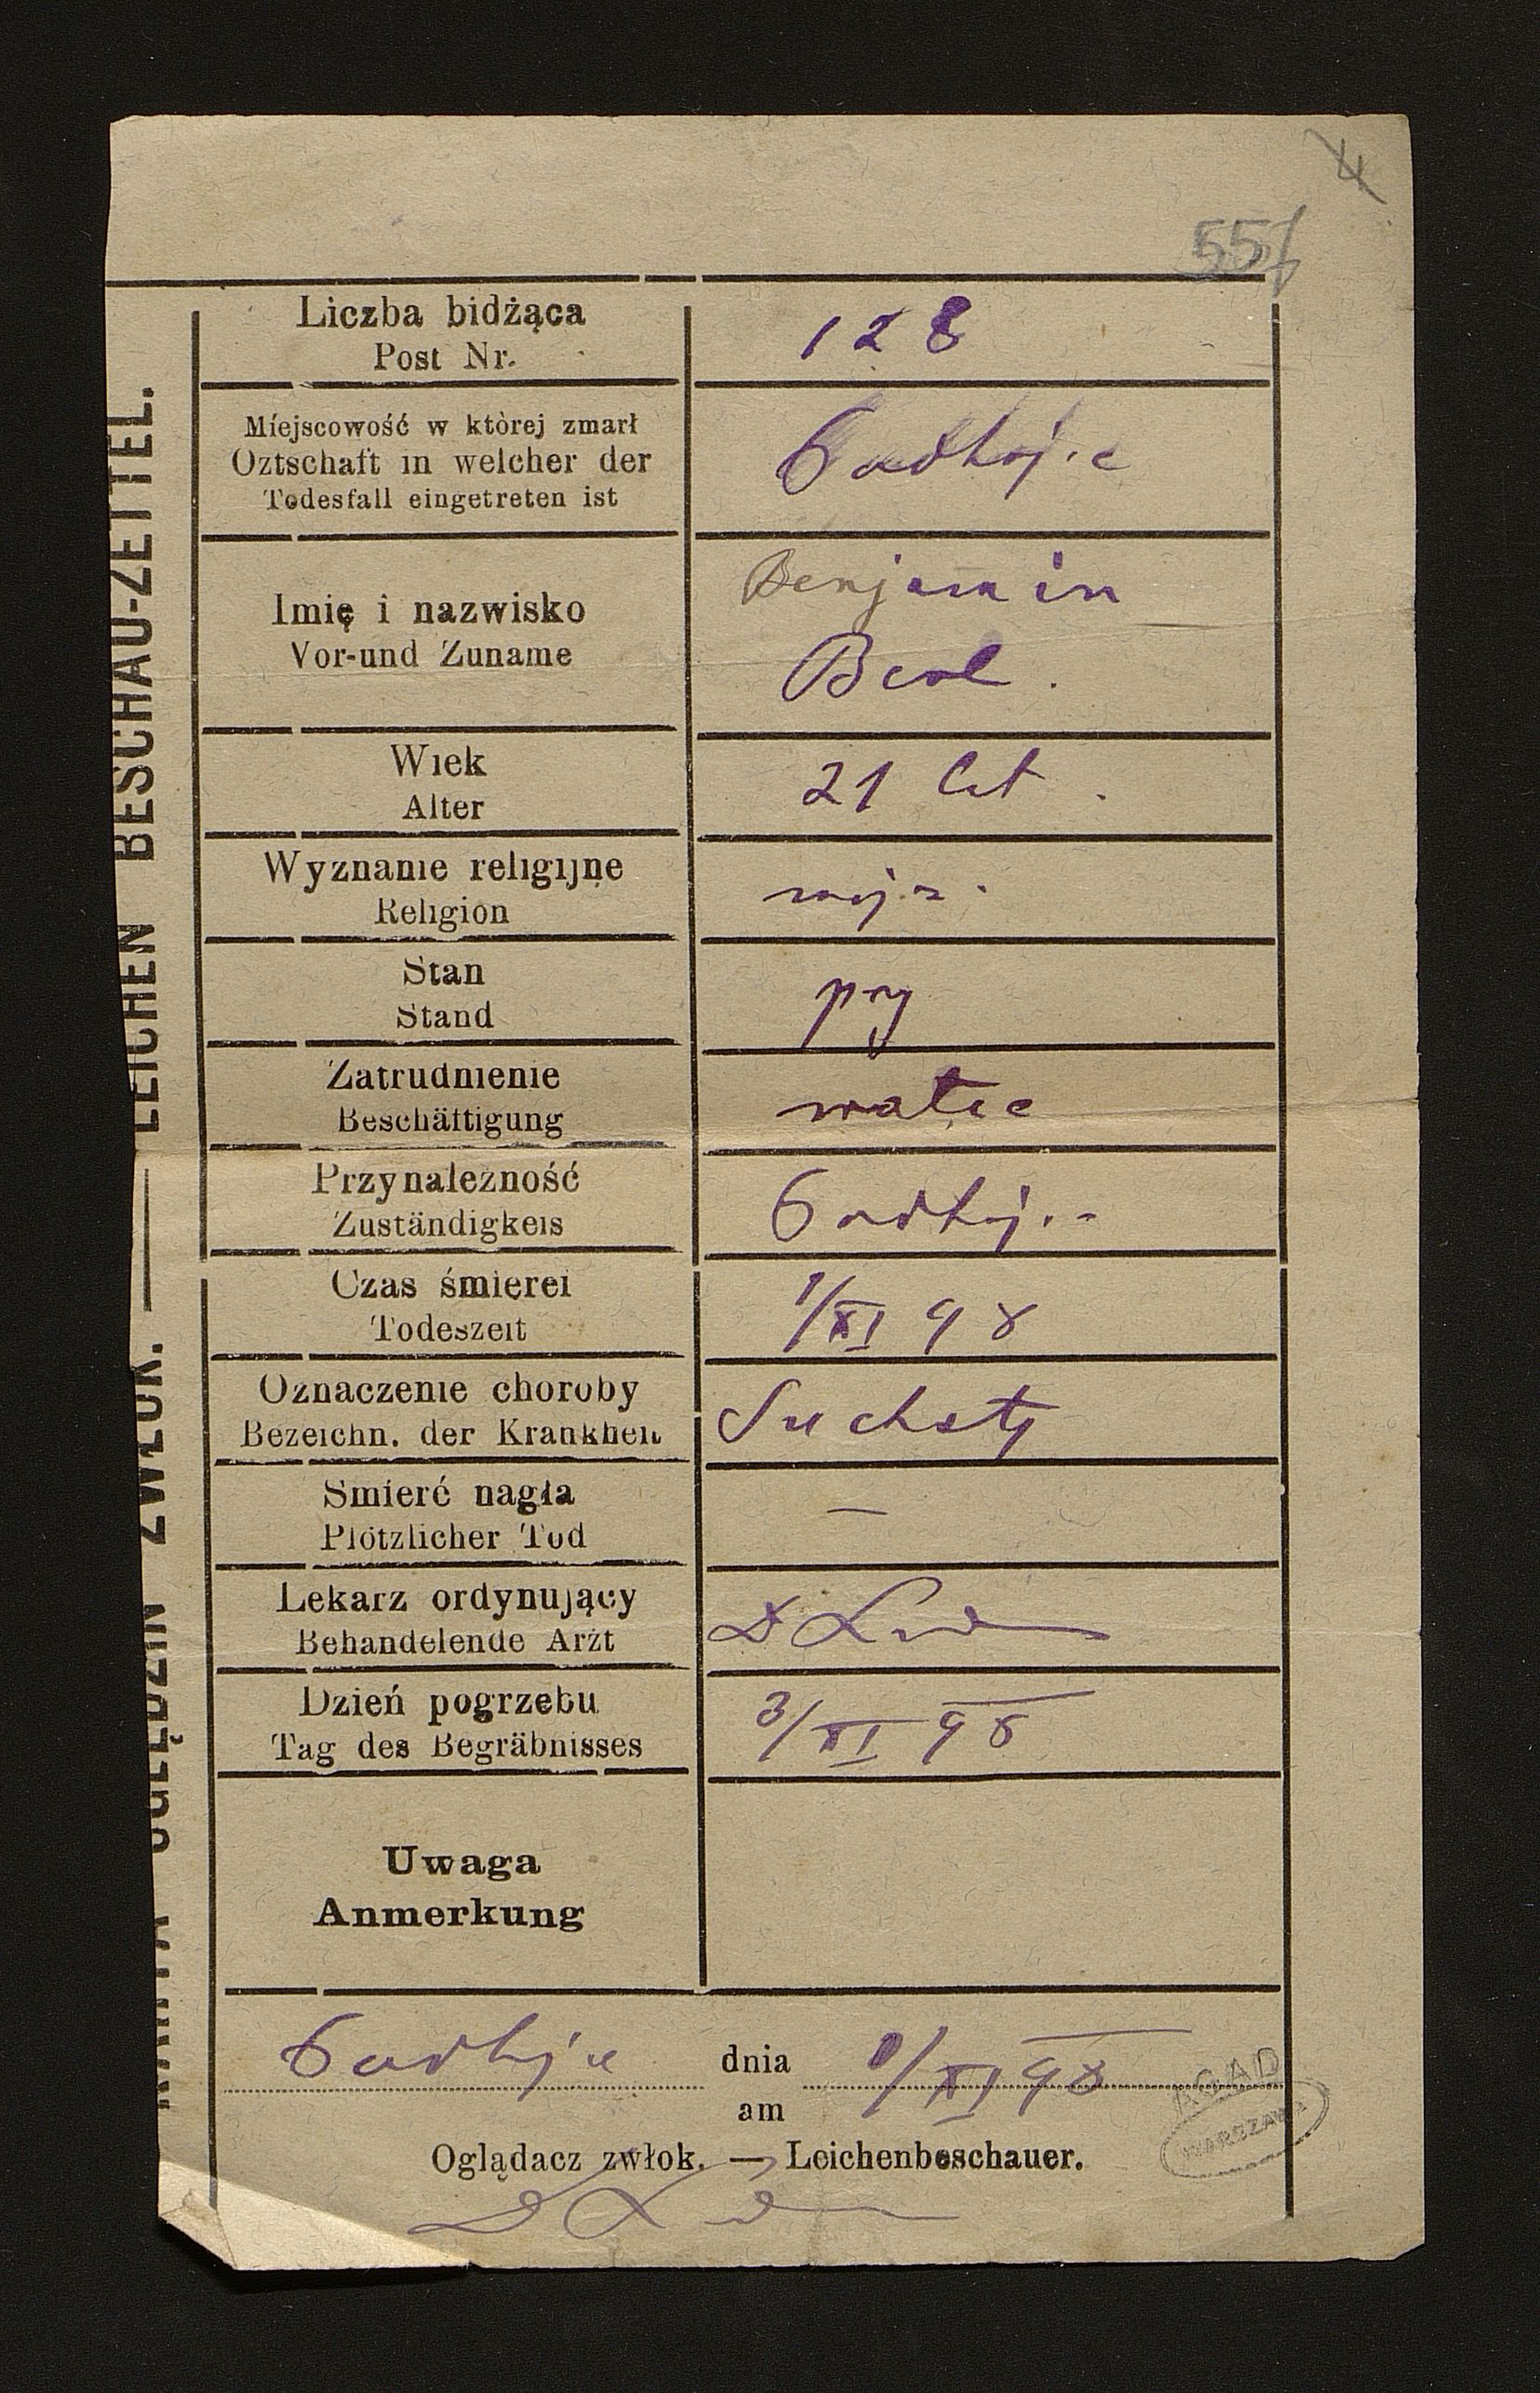 4
KARTA OGLĘDZIN ZWŁOK. — LEICHEN BESCHAU-ZETTEL.
Liczba bidżąca
Post Nr.
128
Miejscowość w której zmarł
Oztschaft in welcher der
Todesfall eingetreten ist
Podhajce
Imię i nazwisko
Vor-und Zuname
Benjamin
Berl.
Wiek
Alter
21 lat.
Wyznanie religijne
Religion
mojż.
Stan
Stand
pry
Zatrudnienie
Beschäftigung
watie
Przynależność
Zuständigkeis
Podhaj..
Czas śmierei
Todeszeit
1/XI 98
Oznaczenie choroby
Bezeichn. der Krankheit
Suchoty
Smierć nagła
Plötzlicher Tod
—
Lekarz ordynujący
Behandelende Arzt
D
Dzień pogrzebu
Tag des Begräbnisses
3/XI 98
Uwaga
Anmerkung
Podhajce dnia 1/XI 98
am
AGAD
WARSZAWA
Oglądacz zwłok. — Leichenbeschauer.
D